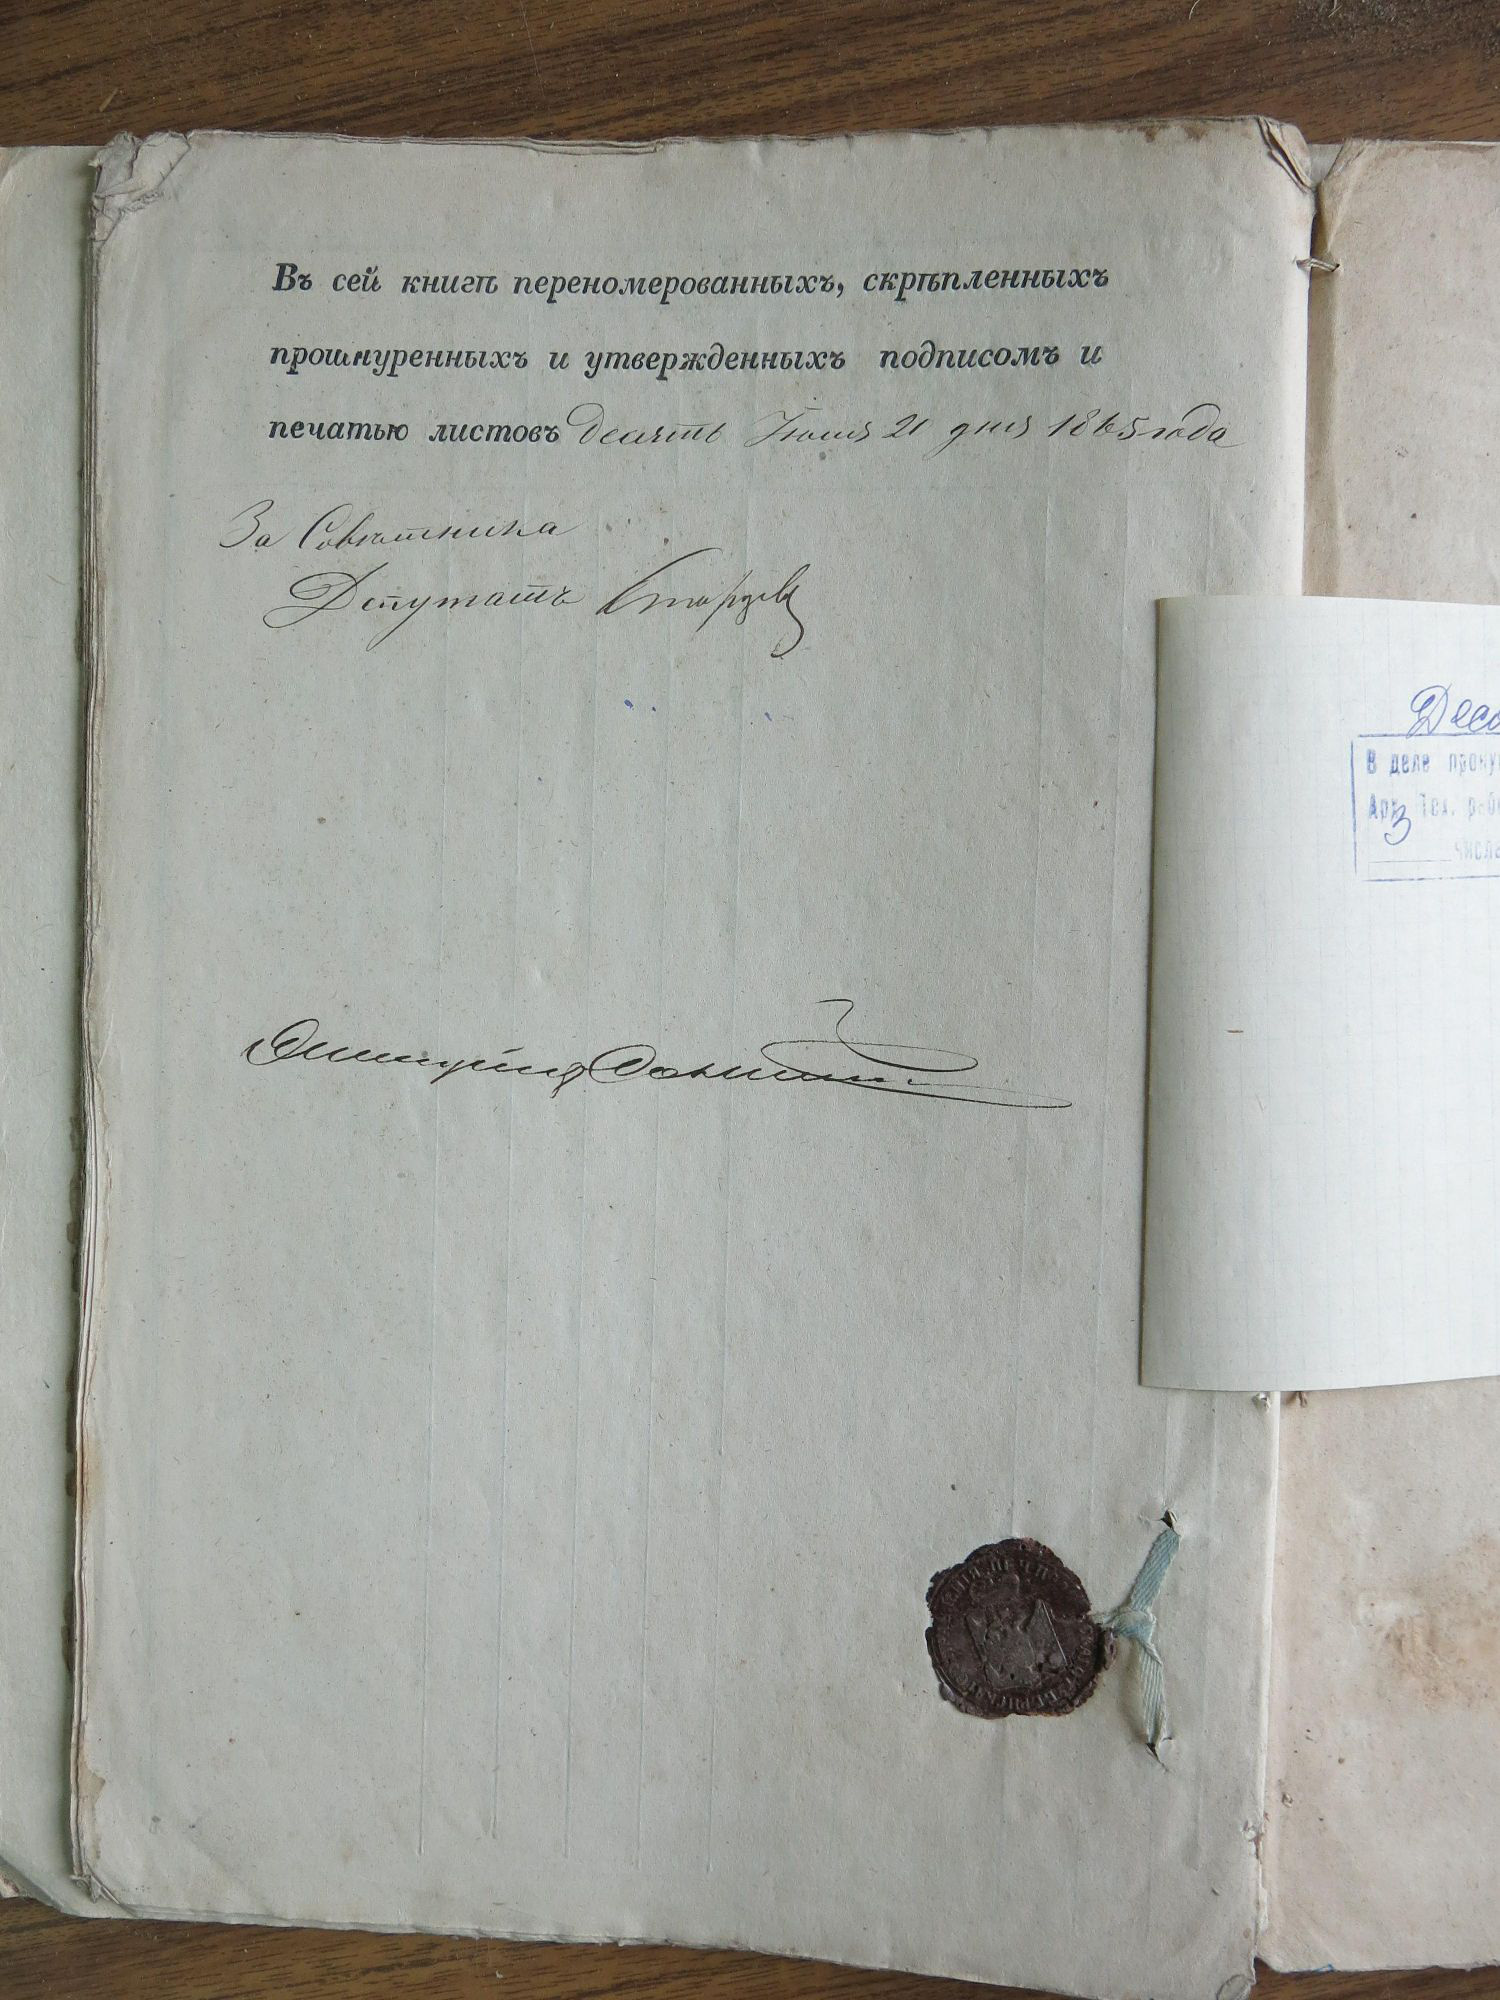 Въ сей книгѣ переномерованныхъ, скрѣпленныхъ
прошнуренныхъ и утвержденныхъ подписомъ и
печатью листовъ десять 21 дня 1865 года
За Совѣтника
Депутатъ
Дмитрій
Деся
В деле прону
Арх. Тех. раб
3
числа